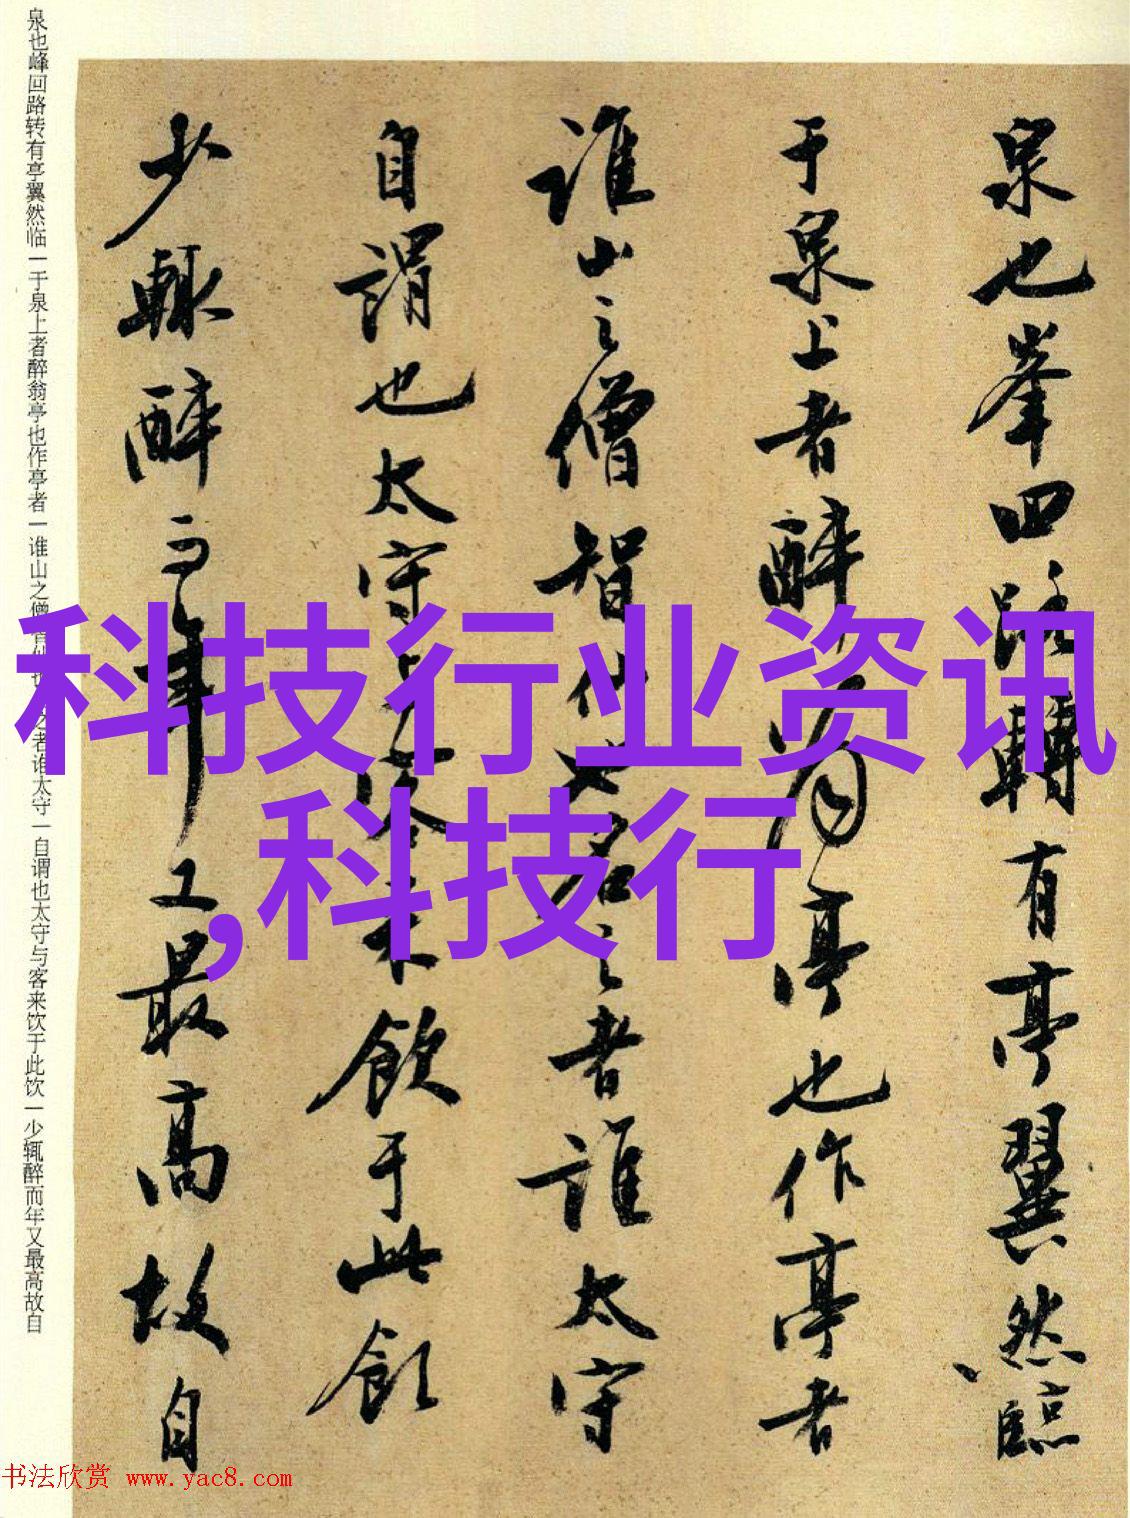 泉也峰回路转有亭翼然临一于泉上者醉翁亭也作亭者一谁山之僧
之者谁太守一自谓也太守与客来饮于此饮一少辄醉而年又最高故自
泉也峯回路轉有亭翼然臨
于泉上者醉翁亭也作亭者
誰山之僧智仙也名之者誰太守
自謂也太守与客来飲于此飲
少輒醉而年又最高故自
科技行业资讯
,科技行
书法欣赏 www.yac8.com